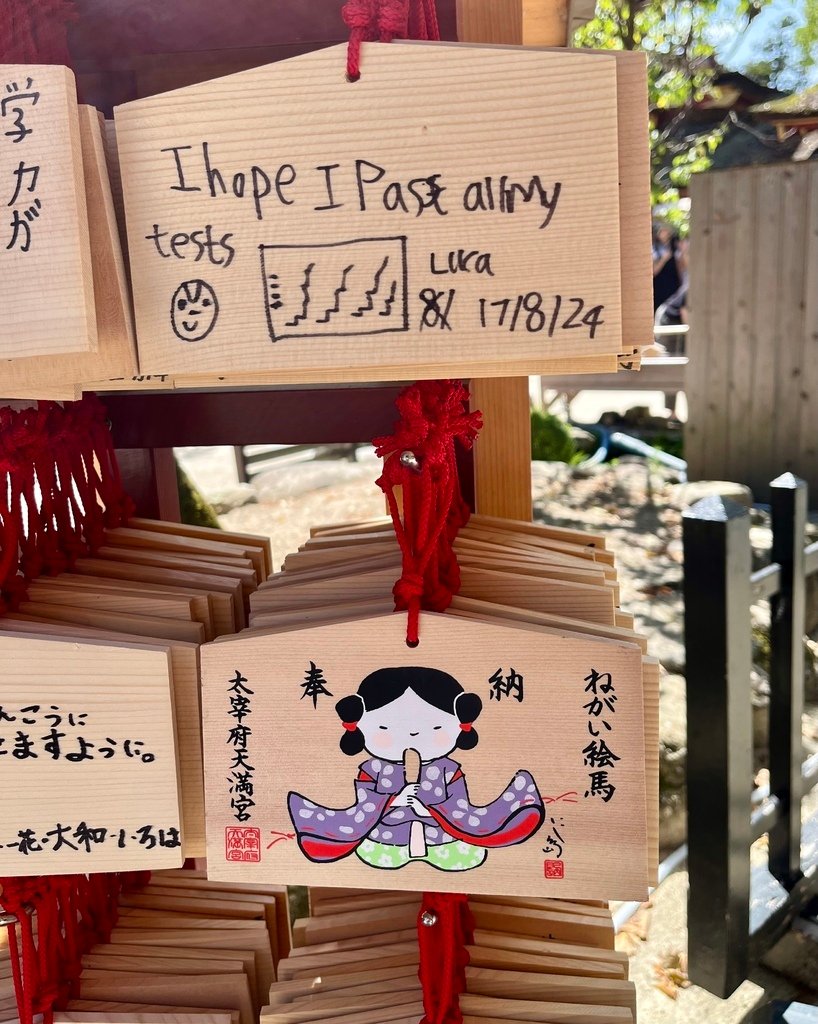 学力が
I hope I Pass all my
tests
Luca
17/8/24
奉納
太宰府天満宮
ねがい絵馬
んこうに
ますように。
一花・大和・いろは